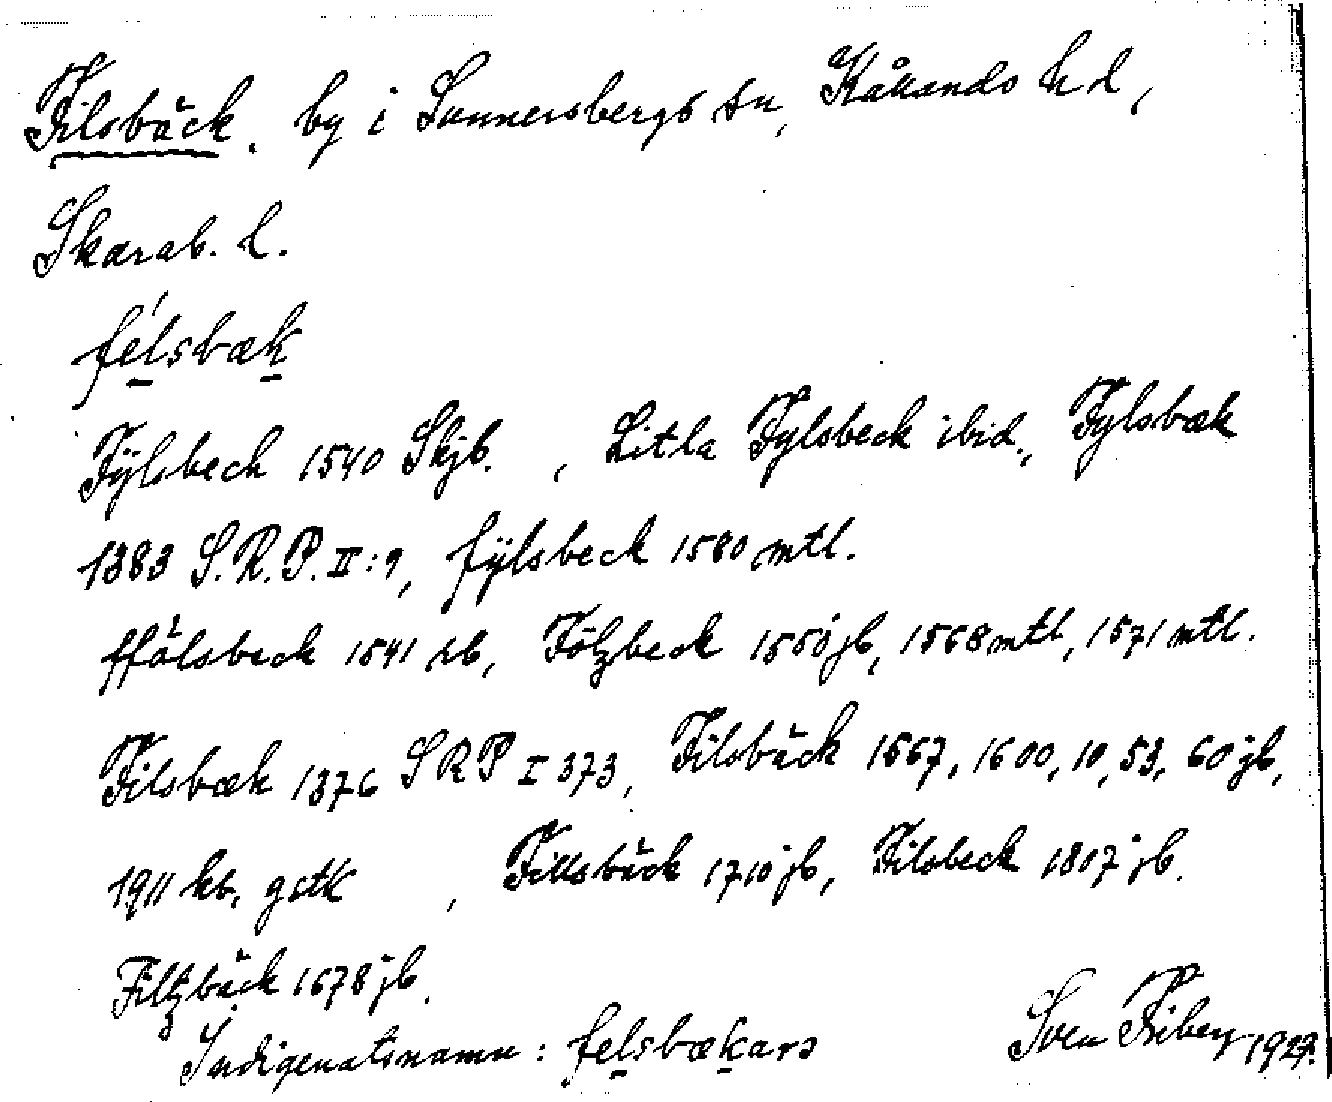 Filsbäck. by i Sunnersbergs sn, Kållands hd,
Skarab. l.
félsbæk
Fÿlsbeck 1540 Skjb. , Litla Fylsbeck ibid., Fylsbæk
1383 S.R.P. II:9, fÿlsbeck 1580 mtl.
ffålsbeck 1541 sb, Fölzbeck 1550 jb, 1568 mtl, 1571 mtl.
Filsbæk 1376 SRP I 373, Filsbäck 1567, 1600, 10, 53, 60 jb,
1911 kb, gstk , Fillsbäck 1710 jb, Filsbeck 1807 jb.
Filtzbäck 1678 jb.
Indigenatsnamn: felsbækars Sven Friberg 1929.